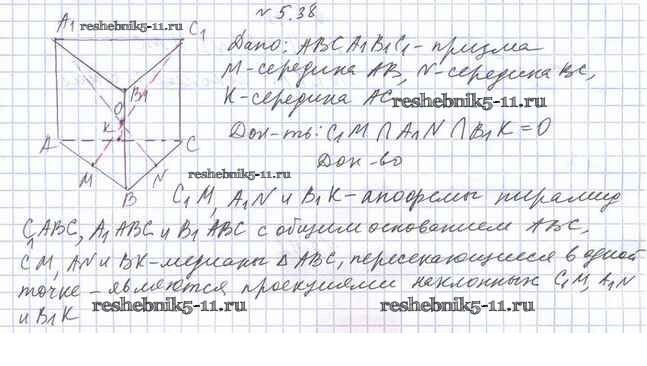 № 5.38
A₁ reshebnik5-11.ru C₁
Дано: ABCA₁B₁C₁ - призма
M-середина AB, N-середина BC,
K-середина AC
reshebnik5-11.ru
Док-ть: C₁M ⋂ A₁N ⋂ B₁K = O
Док-во
B₁
O
K
A
C
M
N
B
reshebnik5-11.ru
C₁M, A₁N и B₁K - апофемы пирамид
C₁ABC, A₁ABC и B₁ABC с общим основанием ABC,
CM, AN и BK - медианы Δ ABC, пересекающиеся в одной
точке - являются проекциями наклонных C₁M, A₁N
и B₁K
reshebnik5-11.ru reshebnik5-11.ru